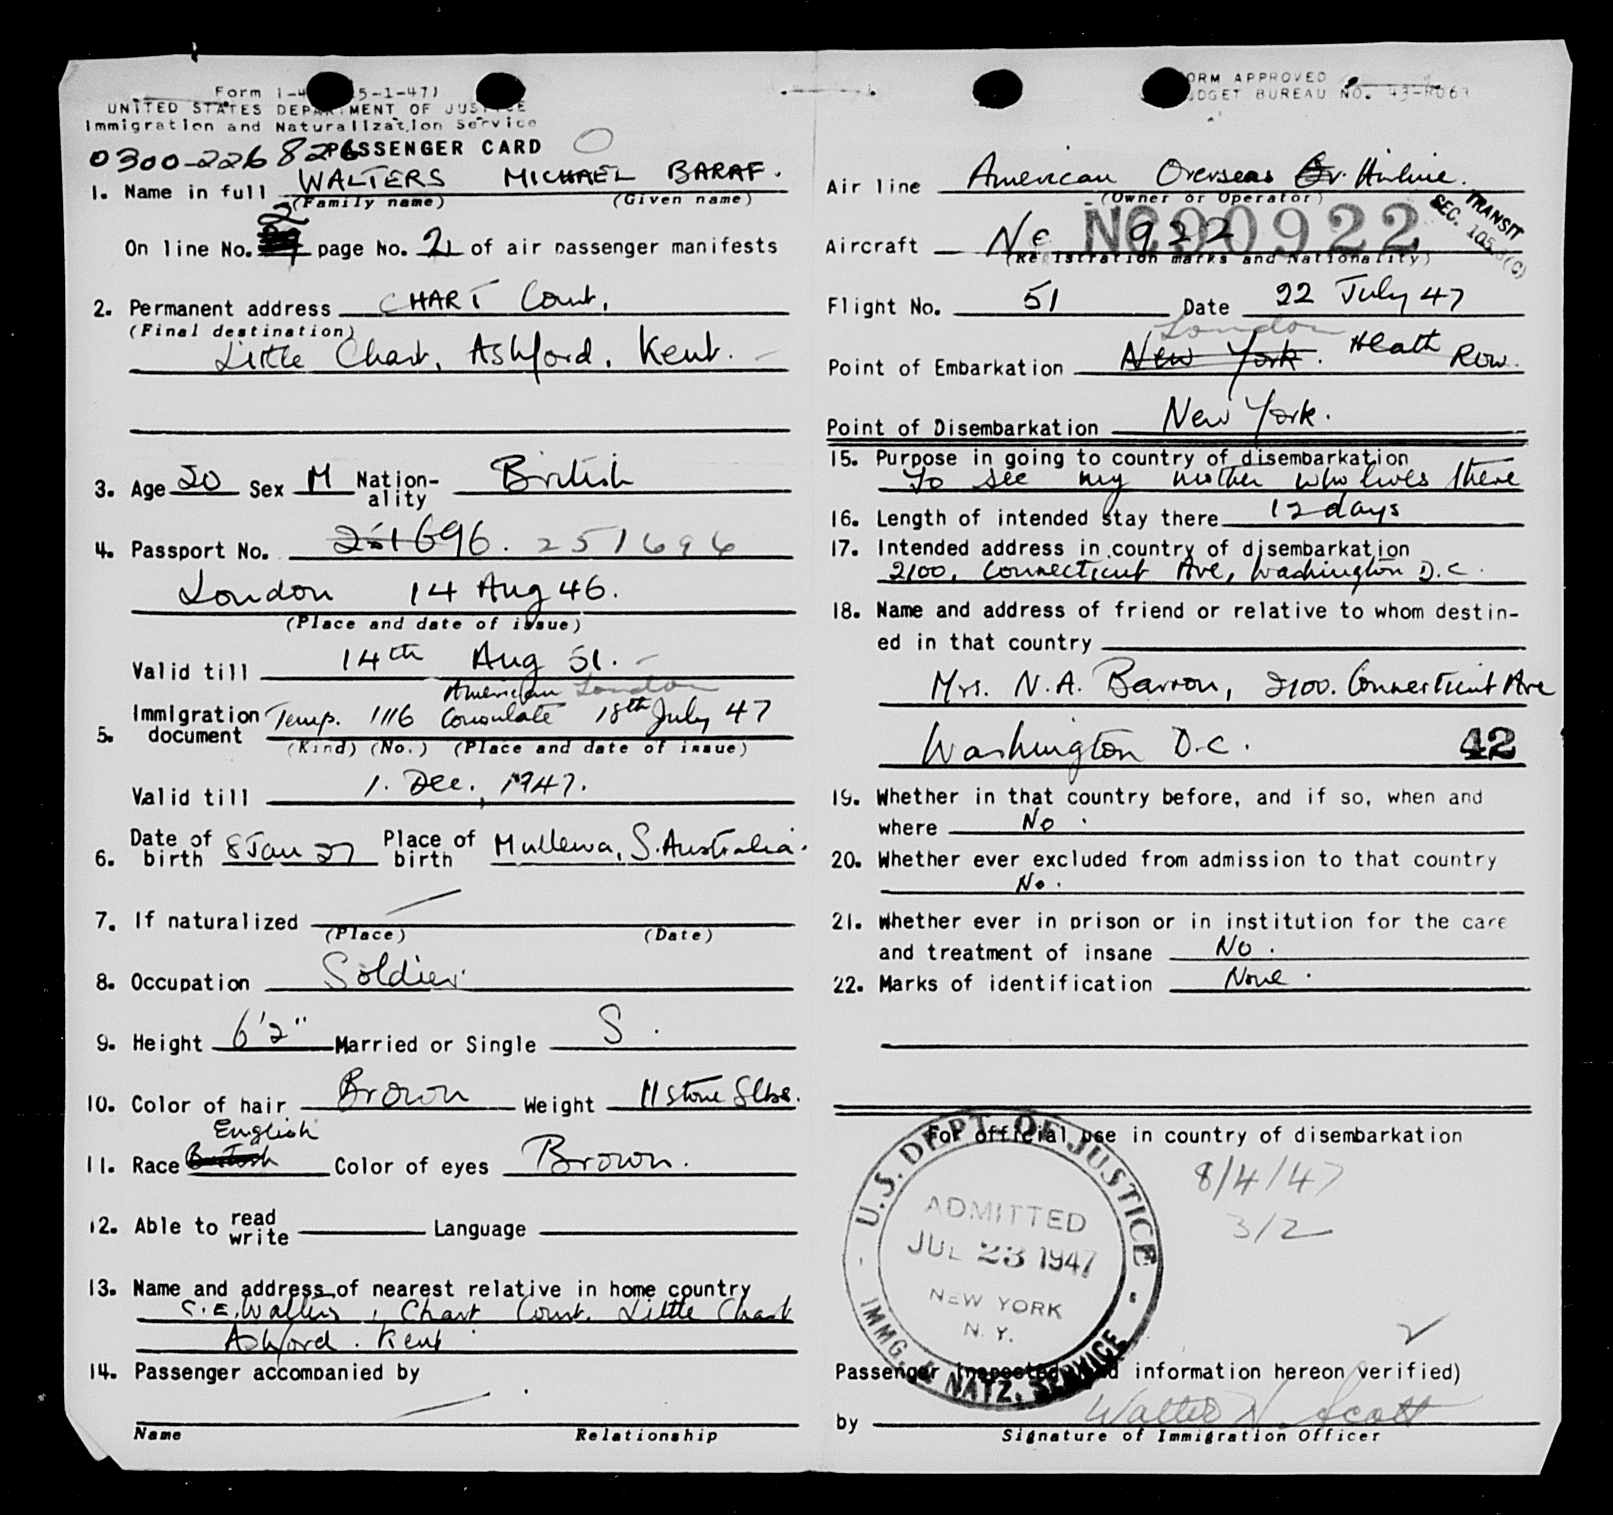 Form I-4 5-1-47)
UNITED STATES DEPARTMENT OF JUSTICE
Immigration and Naturalization Service
0300-226 826
PASSENGER CARD
1. Name in full WALTERS MICHAEL BARAF.
(Family name) (Given name)
On line No. 2 page No. 2 of air passenger manifests
2. Permanent address CHART Court,
(Final destination)
Little Chart, Ashford, Kent.
3. Age 20 Sex M Nation-ality British
4. Passport No. 251696. 251696
London 14 Aug 46.
(Place and date of issue)
Valid till 14th Aug 51.
American London
5. Immigration document Temp. 1116 Consulate 18th July 47
(Kind) (No.) (Place and date of issue)
Valid till 1. Dec., 1947.
6. Date of birth 8 Jan 27 Place of birth Mullewa, S. Australia.
7. If naturalized
(Place) (Date)
8. Occupation Soldier
9. Height 6'2" Married or Single S.
10. Color of hair Brown Weight 11 stone 8lbs.
English
11. Race British Color of eyes Brown.
12. Able to read write Language
13. Name and address of nearest relative in home country
C.E. Walters, Chart Court, Little Chart
Ashford. Kent
14. Passenger accompanied by
Name Relationship
FORM APPROVED
BUDGET BUREAU NO. 43-R069
Air line American Overseas Air Airline.
(Owner or Operator)
TRANSIT
SEC. 105.3(C)
Aircraft Nc 922 NC90922
(Registration marks and Nationality)
Flight No. 51 Date 22 July 47
London
Point of Embarkation New York. Heath Row.
Point of Disembarkation New York.
15. Purpose in going to country of disembarkation
To see my mother who lives there
16. Length of intended stay there 12 days
17. Intended address in country of disembarkation
2100, Connecticut Ave, Washington D.C.
18. Name and address of friend or relative to whom destin-
ed in that country
Mrs. N.A. Barron, 2100. Connecticut Ave
Washington D.C. 42
19. Whether in that country before, and if so, when and
where No.
20. Whether ever excluded from admission to that country
No.
21. Whether ever in prison or in institution for the care
and treatment of insane No.
22. Marks of identification None.
For official use in country of disembarkation
8/4/47
3/2
U.S. DEPT. OF JUSTICE
ADMITTED
JUL 23 1947
NEW YORK
N.Y.
IMMG. & NATZ. SERVICE
Passenger inspected and information hereon verified)
by Walter N. Scott
Signature of Immigration Officer